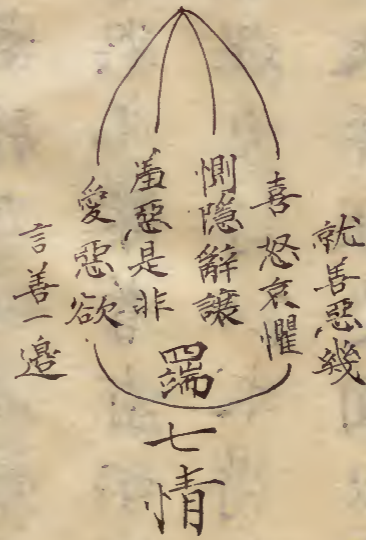 就善惡幾
喜怒哀懼
惻隱辭讓
羞惡是非
愛惡欲
言善一邊
四端
七情